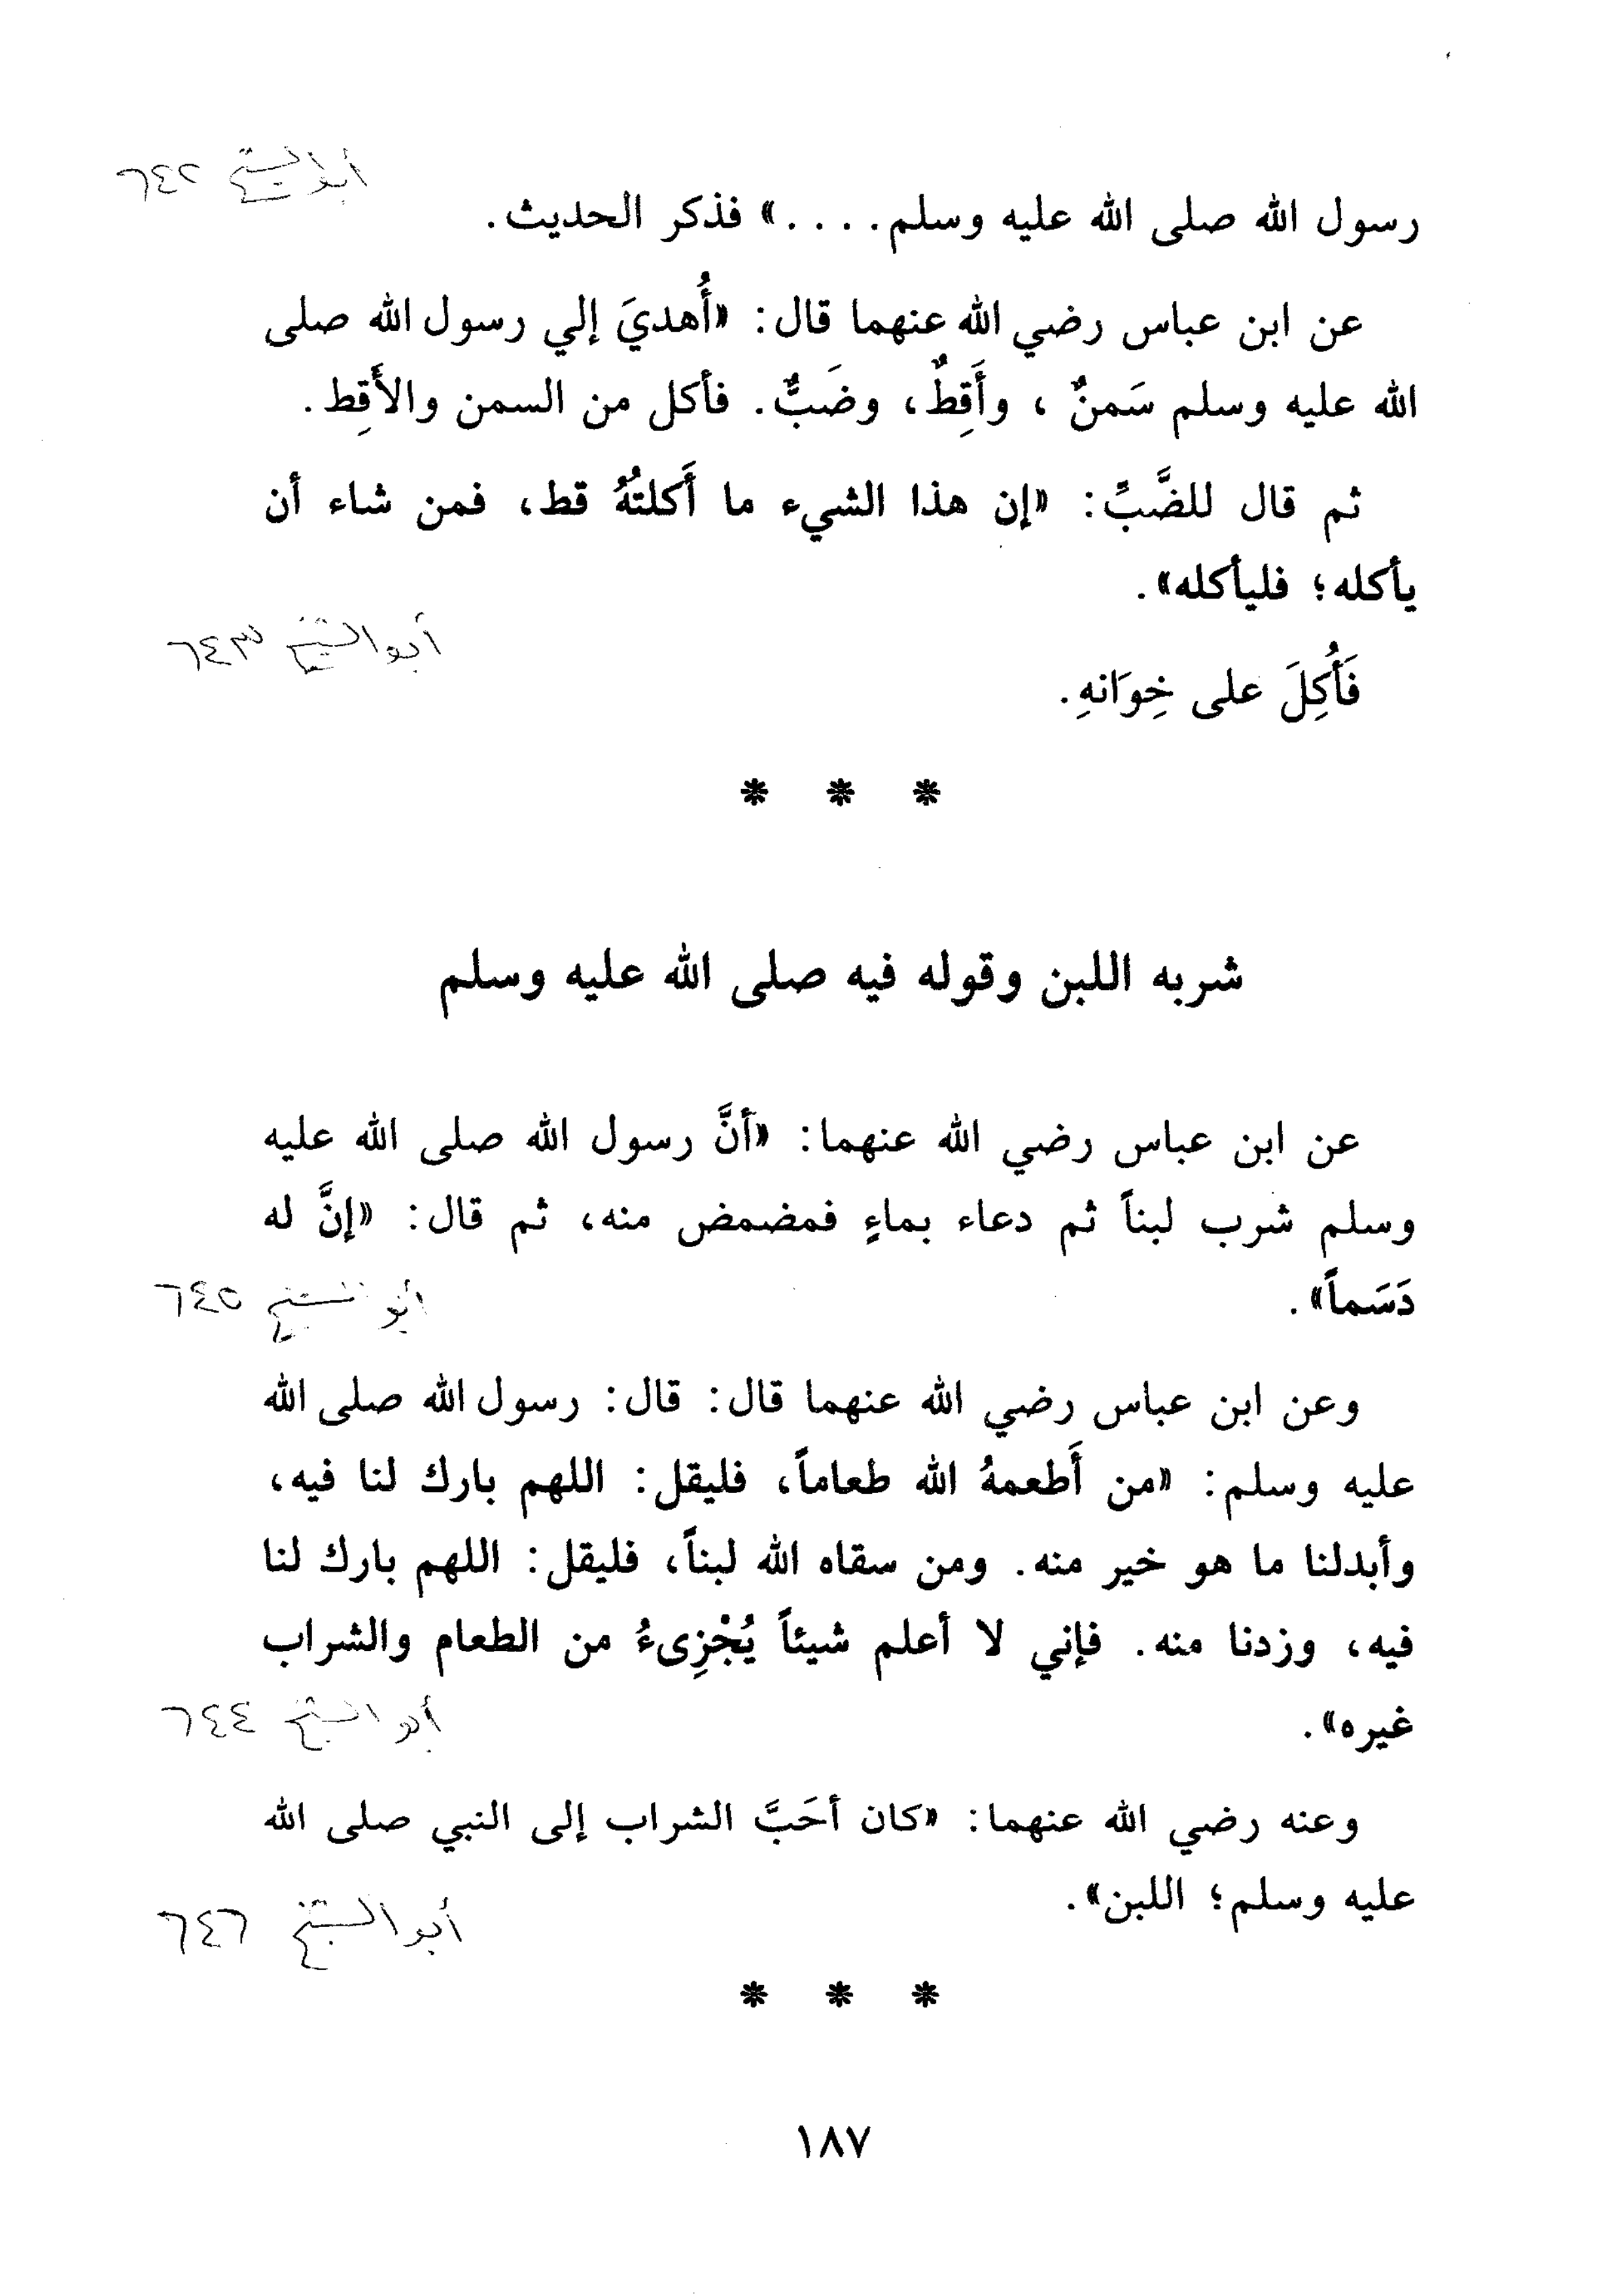 أبو الشيخ ٦٤٢
رسول الله صلى الله عليه وسلم. . . .» فذكر الحديث.
عن ابن عباس رضي الله عنهما قال: «أُهديَ إلي رسول الله صلى
الله عليه وسلم سَمنٌ ، وأَقِطٌ، وضَبٌّ. فأكل من السمن والأَقِط.
ثم قال للضَّبِّ: «إن هذا الشيء ما أَكلتُهُ قط، فمن شاء أن
يأكله؛ فليأكله».
أبو الشيخ ٦٤٣
فَأُكِلَ على خِوَانهِ.
* * *
شربه اللبن وقوله فيه صلى الله عليه وسلم
عن ابن عباس رضي الله عنهما: «أنَّ رسول الله صلى الله عليه
وسلم شرب لبناً ثم دعاء بماءٍ فمضمض منه، ثم قال: «إنَّ له
دَسَماً».
أبو الشيخ ٦٤٥
وعن ابن عباس رضي الله عنهما قال: قال: رسول الله صلى الله
عليه وسلم: «من أَطعمهُ الله طعاماً، فليقل: اللهم بارك لنا فيه،
وأبدلنا ما هو خير منه. ومن سقاه الله لبناً، فليقل: اللهم بارك لنا
فيه، وزدنا منه. فإني لا أعلم شيئاً يُجْزِىءُ من الطعام والشراب
غيره».
أبو الشيخ ٦٤٤
وعنه رضي الله عنهما: «كان أحَبَّ الشراب إلى النبي صلى الله
عليه وسلم؛ اللبن».
أبو الشيخ ٦٤٦
* * *
١٨٧